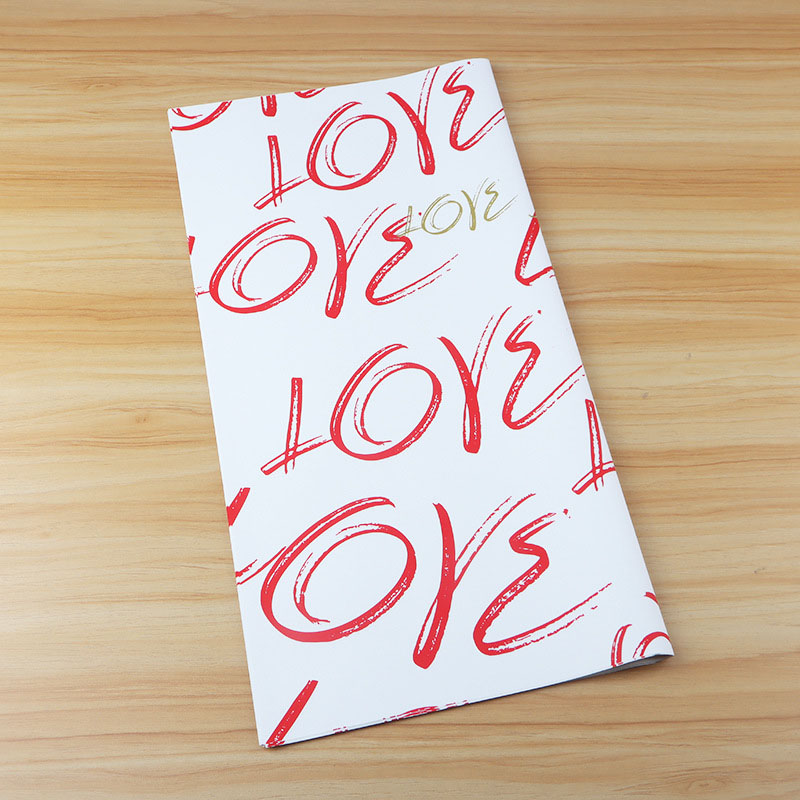 LOVE
LOVE
OVE
LOVE
OVE